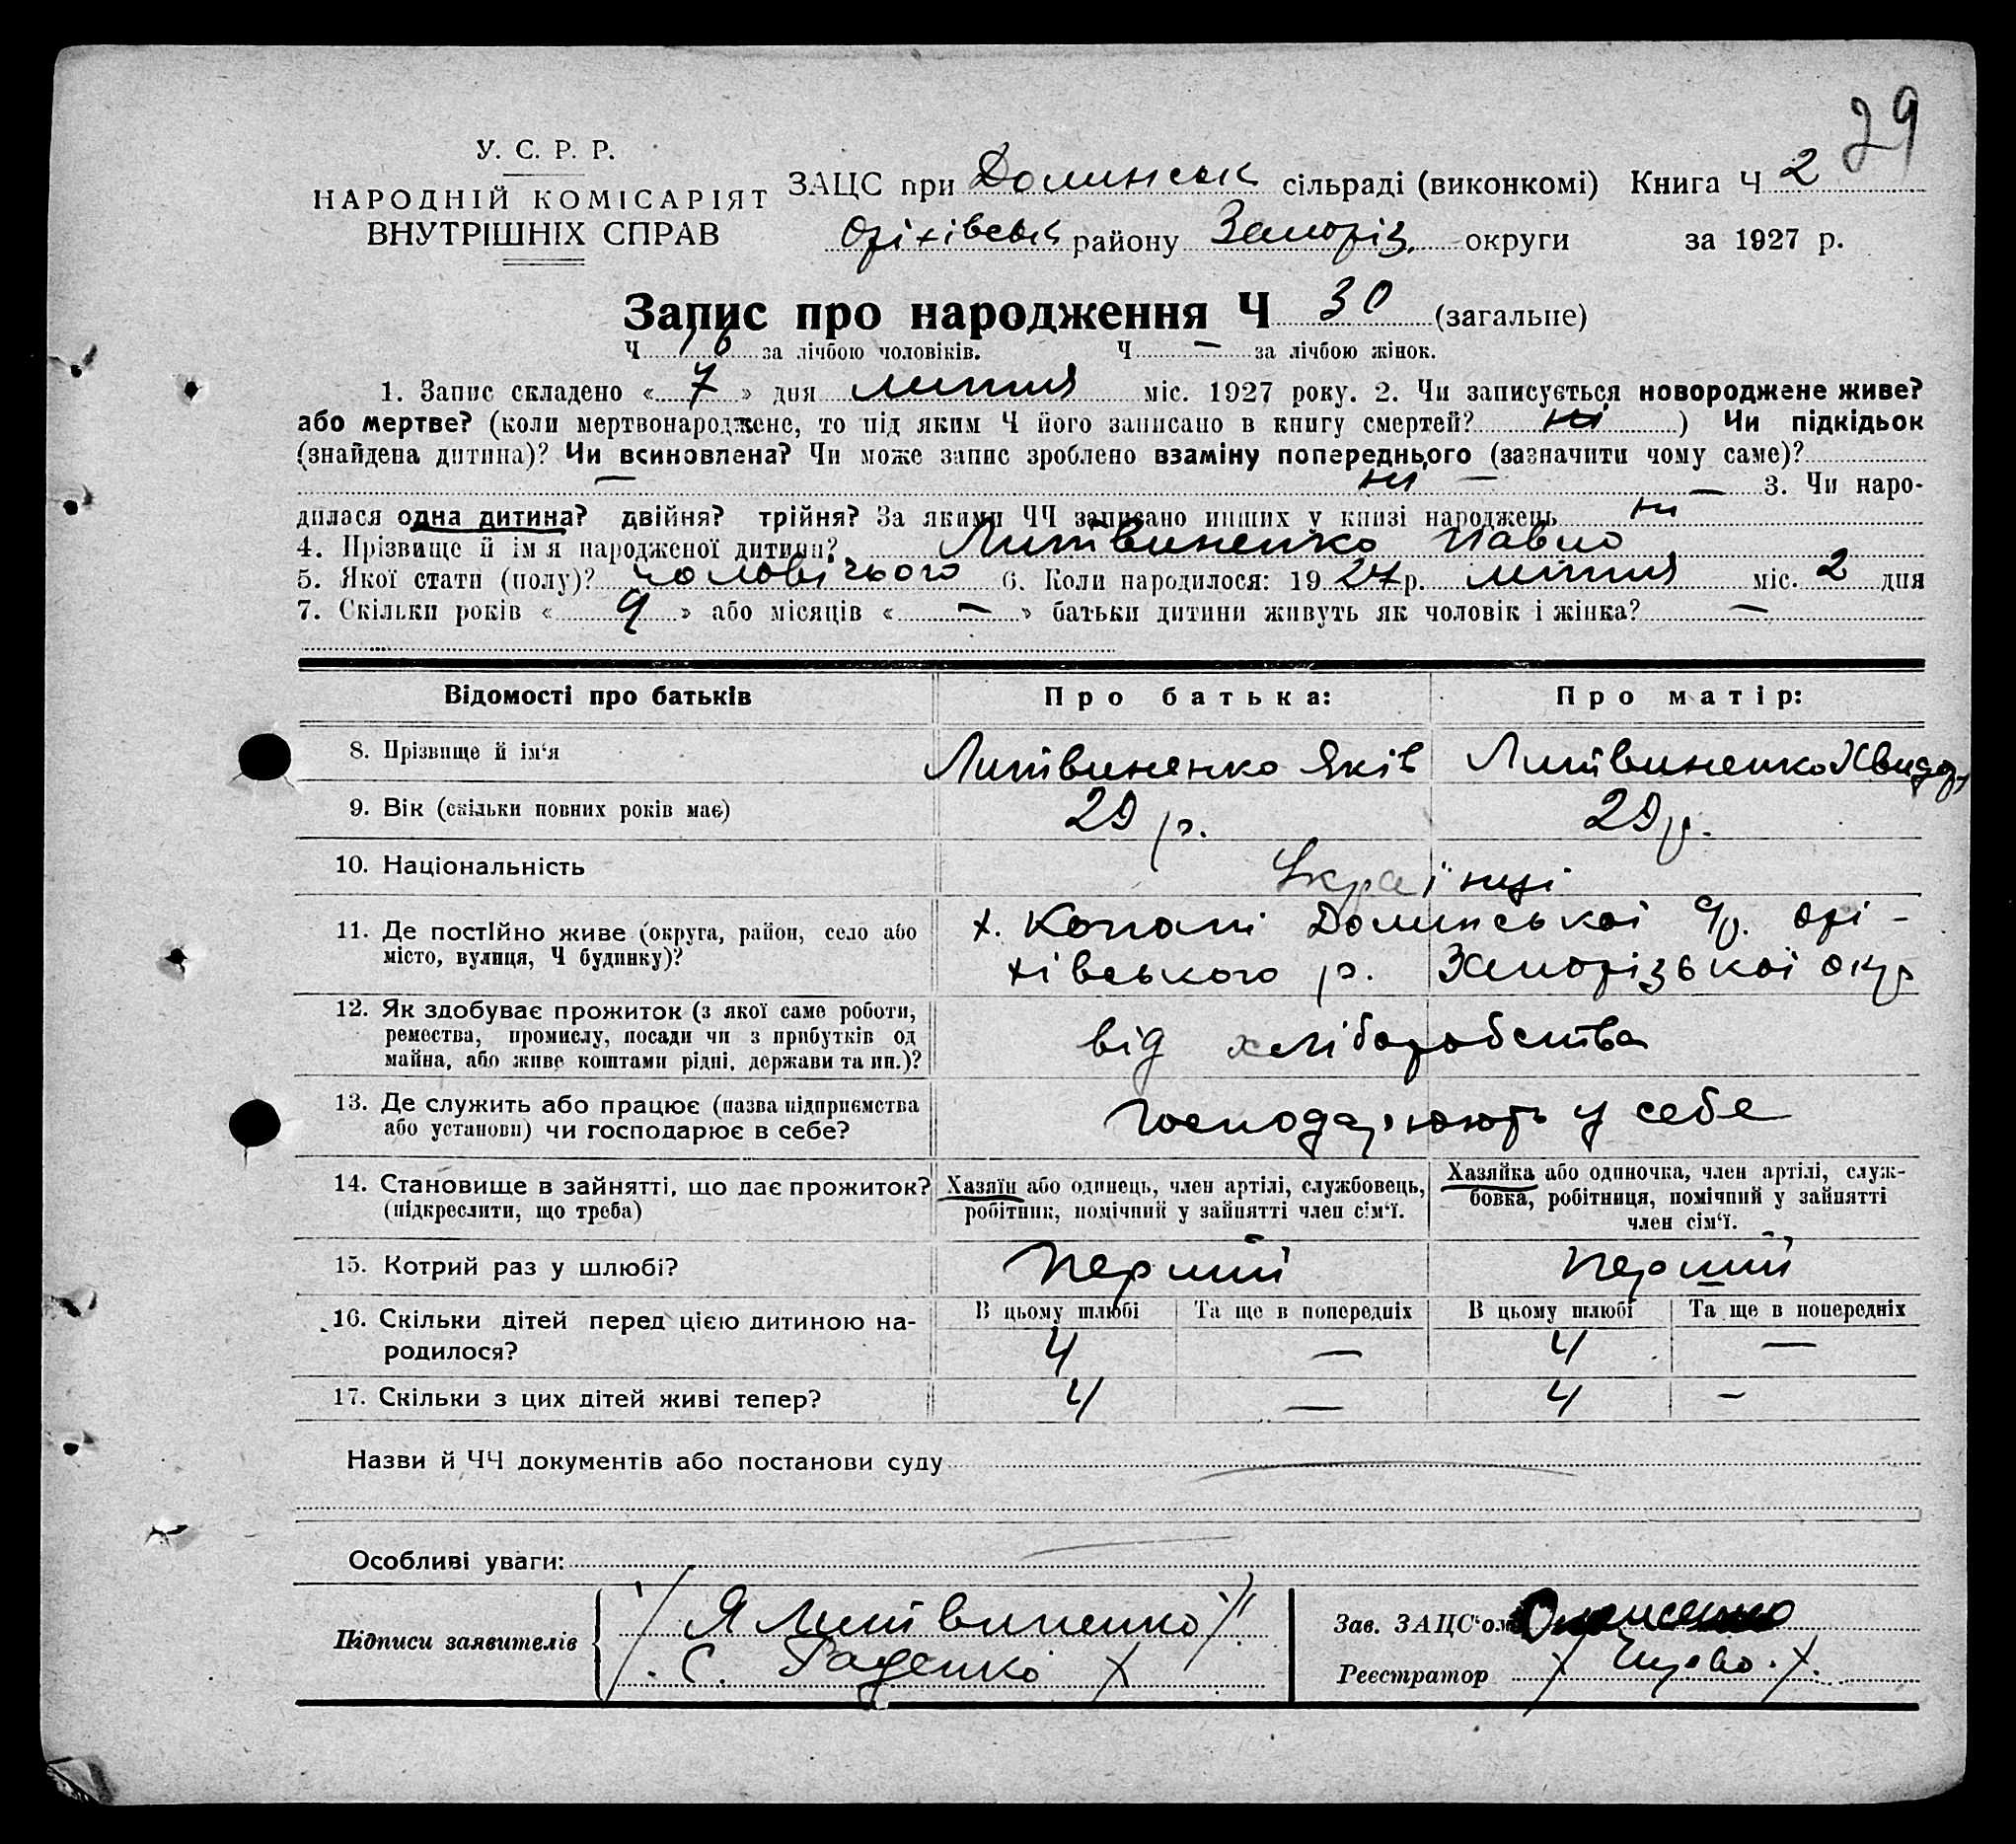 29
У. С. Р. Р.
НАРОДНІЙ КОМІСАРІЯТ
ВНУТРІШНІХ СПРАВ
ЗАЦС при Долинськ сільраді (виконкомі) Книга Ч 2
Оріхівськ району Запоріз. округи за 1927 р.
Запис про народження Ч 30 (загальне)
Ч 16 за лічбою чоловіків. Ч — за лічбою жінок.
1. Запис складено « 7 » дня липня міс. 1927 року. 2. Чи записується новороджене живе?
або мертве? (коли мертвонароджене, то під яким Ч його записано в книгу смертей? ні ) Чи підкідьок
(знайдена дитина)? Чи всиновлена? Чи може запис зроблено взаміну попереднього (зазначити чому саме)?
— ні — — 3. Чи наро-
дилася одна дитина? двійня? трійня? За якими ЧЧ записано инших у книзі народжень ні
4. Прізвище й ім'я народженої дитини? Литвиненко Павло
5. Якої стати (полу)? чоловічього 6. Коли народилося: 1927 р. липня міс. 2 дня
7. Скільки років « 9 » або місяців « — » батьки дитини живуть як чоловік і жінка? —
Відомості про батьків Про батька: Про матір:
8. Прізвище й ім'я Литвиненко Яків Литвиненко
9. Вік (скільки повних років має) 29 р. 29 р.
10. Національність Українці
11. Де постійно живе (округа, район, село або
місто, вулиця, Ч будинку)?
х. Копані Долинської с/р. Орі-
хівського р. Запорізької окр
12. Як здобуває прожиток (з якої саме роботи,
ремества, промислу, посади чи з прибутків од
майна, або живе коштами рідні, держави та ин.)?
від хліборобства
13. Де служить або працює (назва підприємства
або установи) чи господарює в себе?
Господарюють у себе
14. Становище в зайнятті, що дає прожиток?
(підкреслити, що треба)
Хазяїн або одинець, член артілі, службовець,
робітник, помічний у зайнятті член сім'ї.
Хазяйка або одиночка, член артілі, служ-
бовка, робітниця, помічний у зайнятті
член сім'ї.
15. Котрий раз у шлюбі? перший перший
16. Скільки дітей перед цією дитиною на-
родилося?
В цьому шлюбі Та ще в попередніх В цьому шлюбі Та ще в попередніх
4 — 4 —
17. Скільки з цих дітей живі тепер? 4 — 4 —
Назви й ЧЧ документів або постанови суду
Особливі уваги:
Підписи заявителів
/ Я Литвиненко /
С. Раденко
Зав. ЗАЦС'ом
Реєстратор